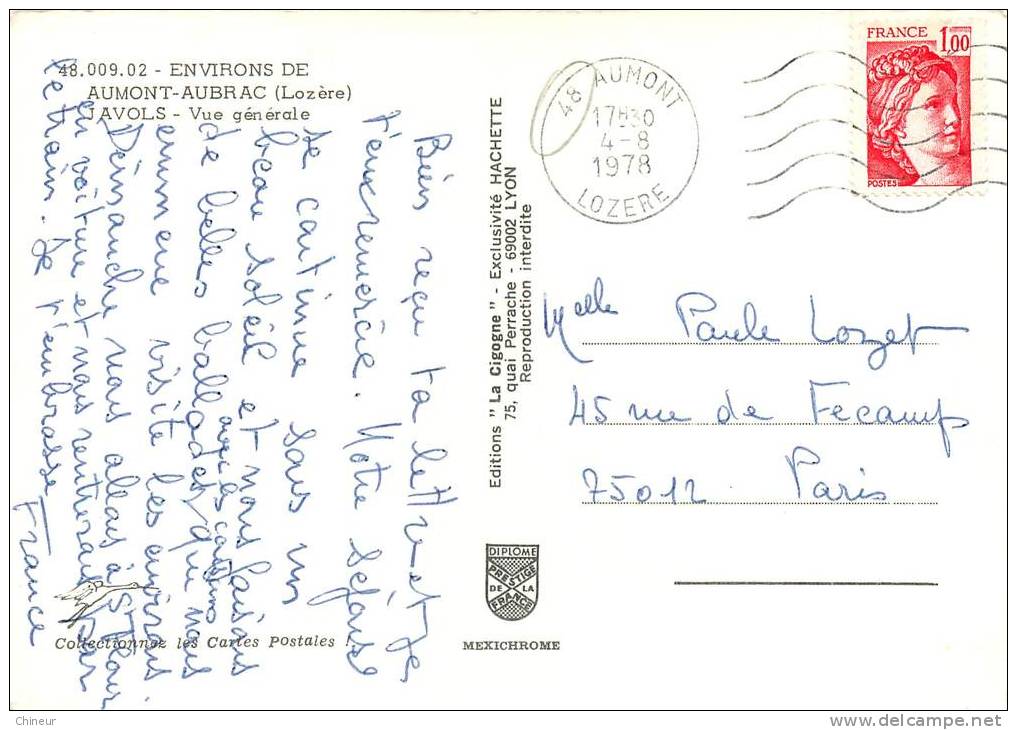 48.009.02 - ENVIRONS DE
AUMONT-AUBRAC (Lozère)
JAVOLS - Vue générale
Bien reçu ta lettre et je
t'en remercie. Notre séjour
se continue sous un
beau soleil et nous faisons
de belles ballades,
avec cousins
qui nous
emmene visité les environs
Dimanche nous allons à St Flour
en voiture et nous rentrerons par
le train. Je t'embrasse
France
Collectionnez les Cartes Postales !
Editions "La Cigogne" - Exclusivité HACHETTE
75, quai Perrache - 69002 LYON
Reproduction interdite
DIPLOME
PRESTIGE
DE LA
FRANCE
MEXICHROME
48 AUMONT
17H30
4-8
1978
LOZERE
FRANCE 1,00
POSTES
Melle Paule Lozet
45 rue de Fecamp
75012 Paris
Chineur
delcampe.net